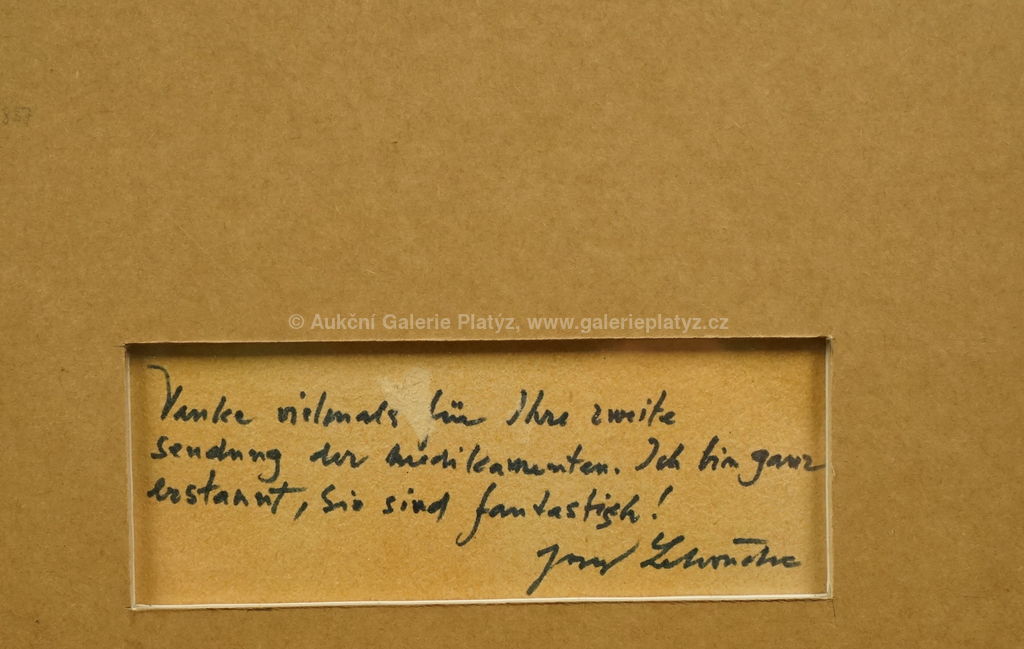 887
© Aukční Galerie Platýz, www.galerieplatyz.cz
Danke vielmals für Ihre zweite
sendung der medikamenten. Ich bin ganz
erstaunt, Sie sind fantastisch!
Josef